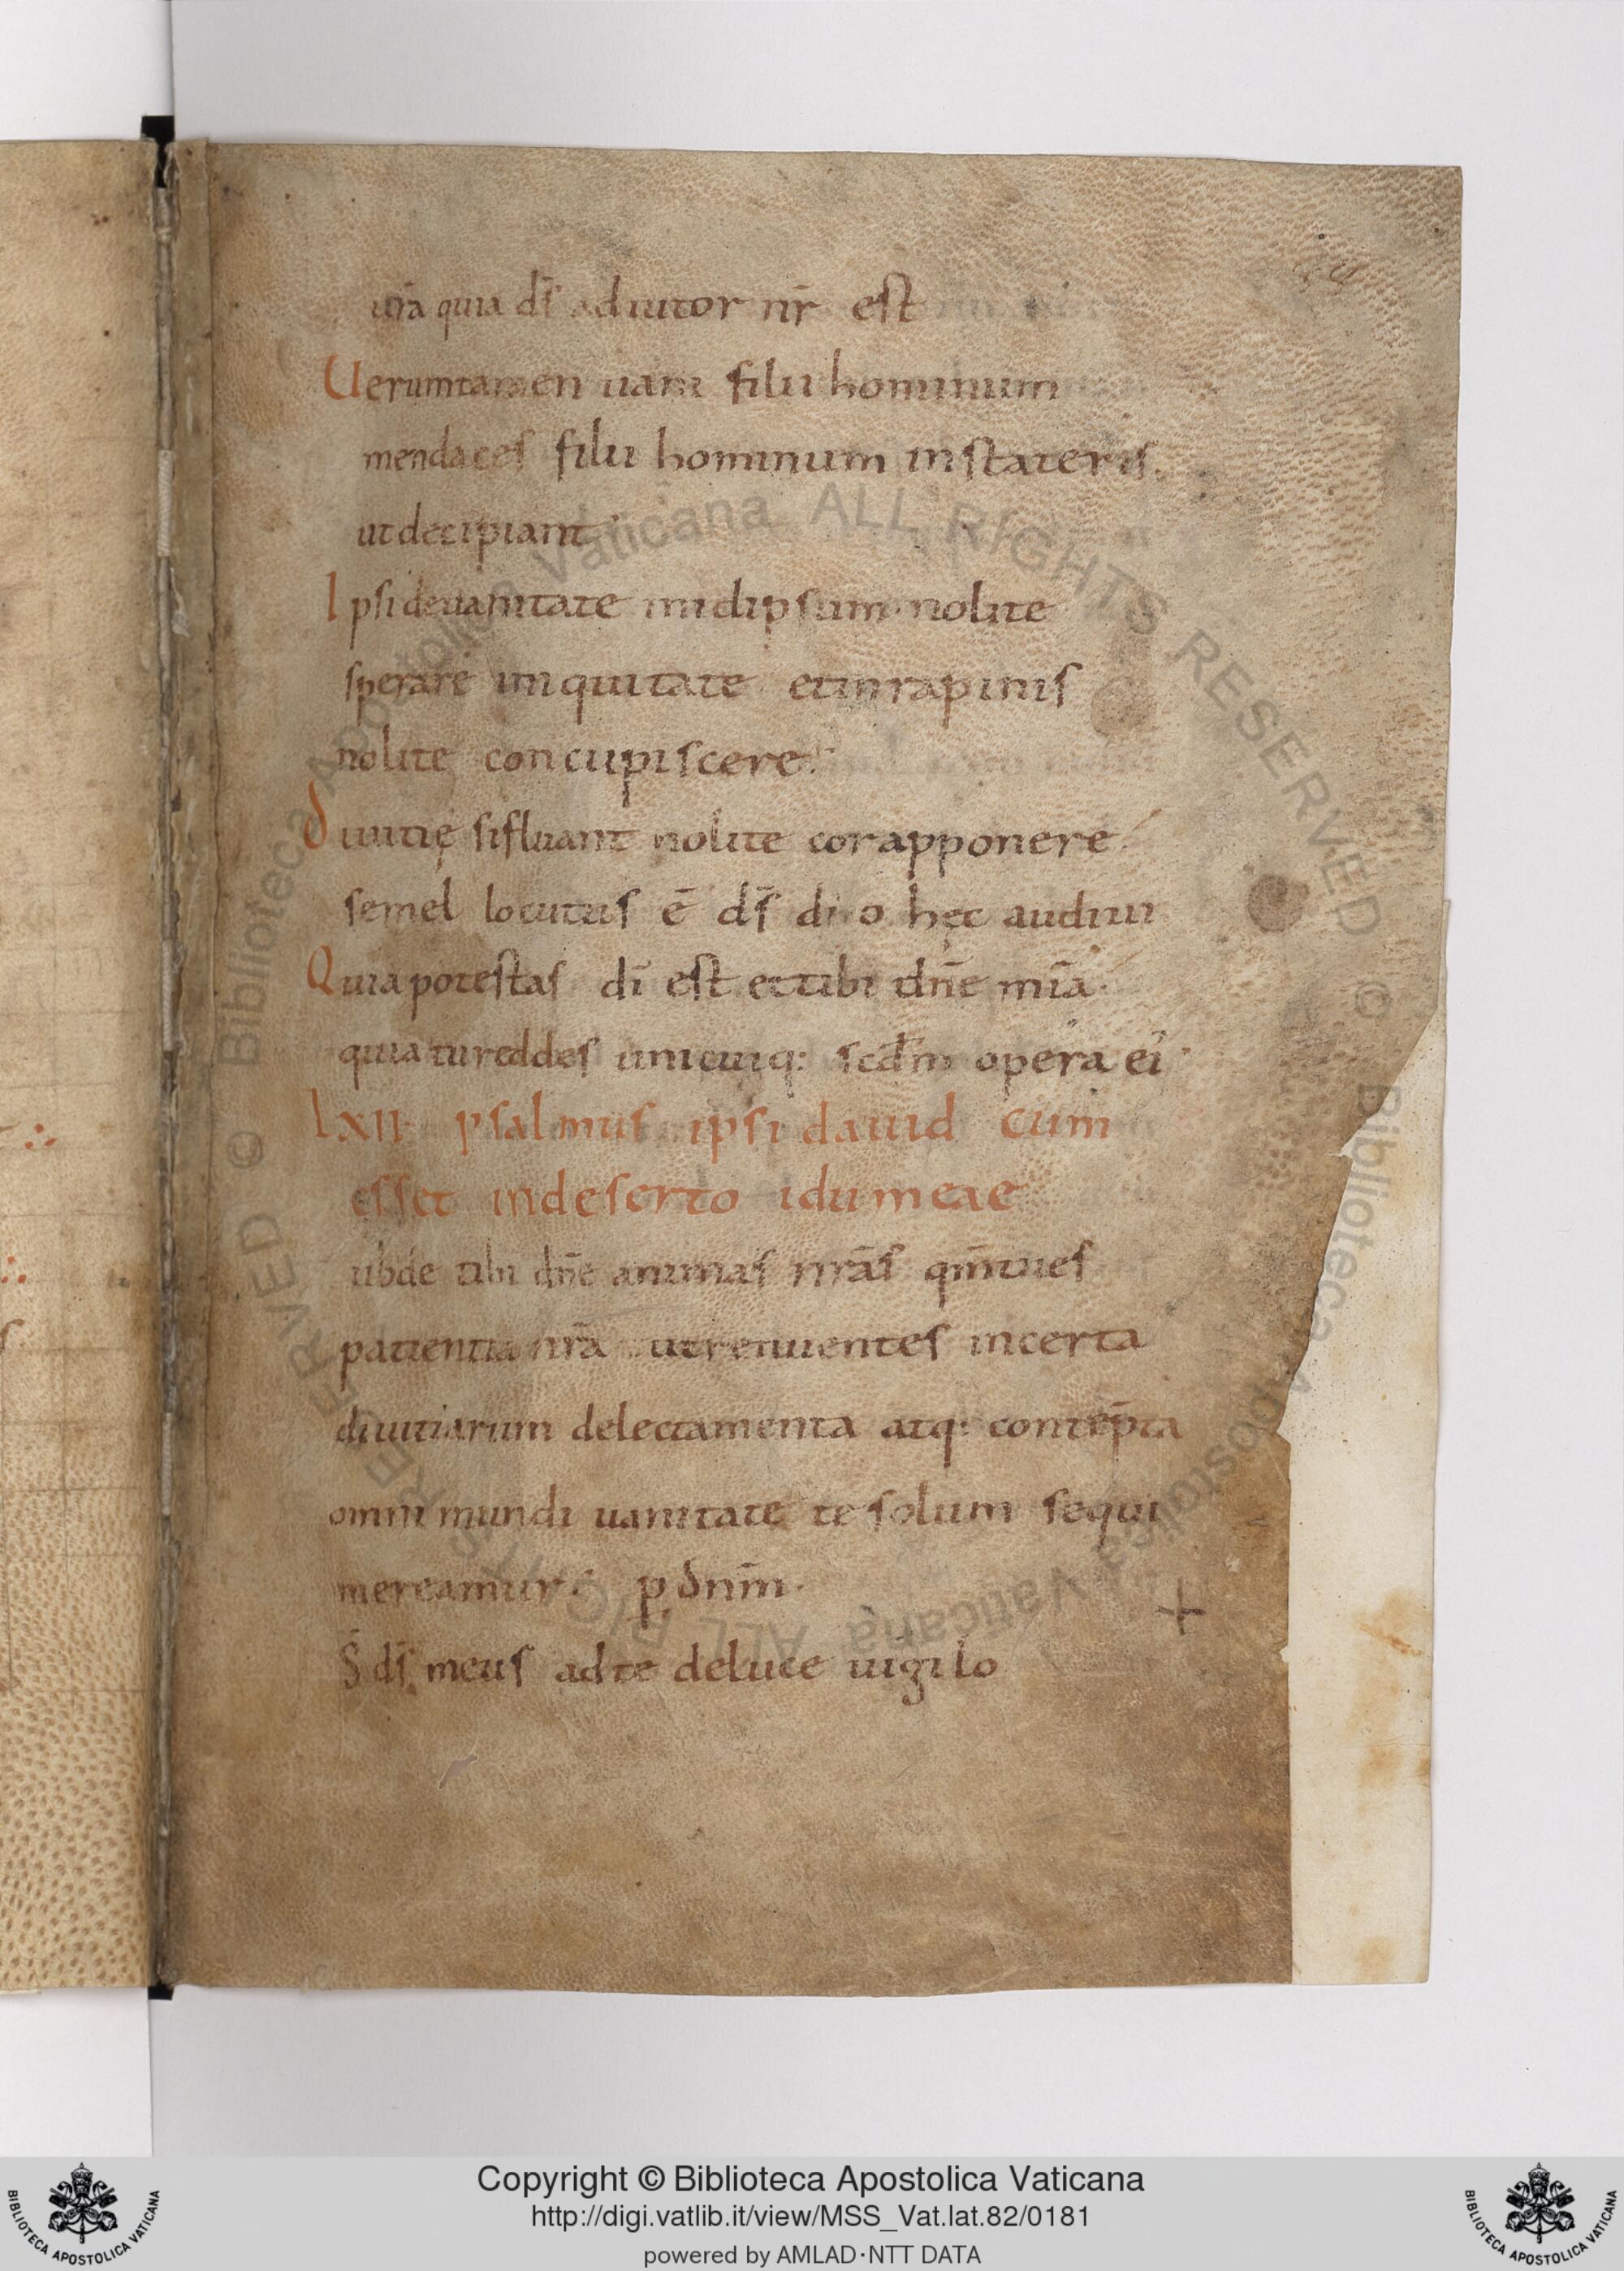 ur̄a quia d̄s adiutor nr̄ est
Ueruntamen uani filii hominum
mendaces filii hominum instateris.
utdecipiant
Ipsi deuanitate inidipsum nolite
sperare iniquitate etinrapinis
nolite concupiscere.
Diuitię sifluant nolite corapponere.
semel locutus ē d̄s duo hęc audiui
Quia potestas dī est ettibi dn̄e mīa.
quia tureddes unicuiq: scd̄m opera ei'
LXII psalmus ipsi dauid cum
esset indeserto idumeae
ubde tibi dn̄e animas nr̄as qm̄tues
patientia nr̄a utrenuentes incerta
diuitiarum delectamenta atq: contep̄ta
omni mundi uanitate te solum sequi
mereamur: p dnm̄.
S̄ d̄s meus adte deluce uigilo
Biblioteca Apostolica Vaticana ALL RIGHTS RESERVED ©
Copyright © Biblioteca Apostolica Vaticana
http://digi.vatlib.it/view/MSS_Vat.lat.82/0181
powered by AMLAD·NTT DATA
BIBLIOTECA APOSTOLICA VATICANA
BIBLIOTECA APOSTOLICA VATICANA